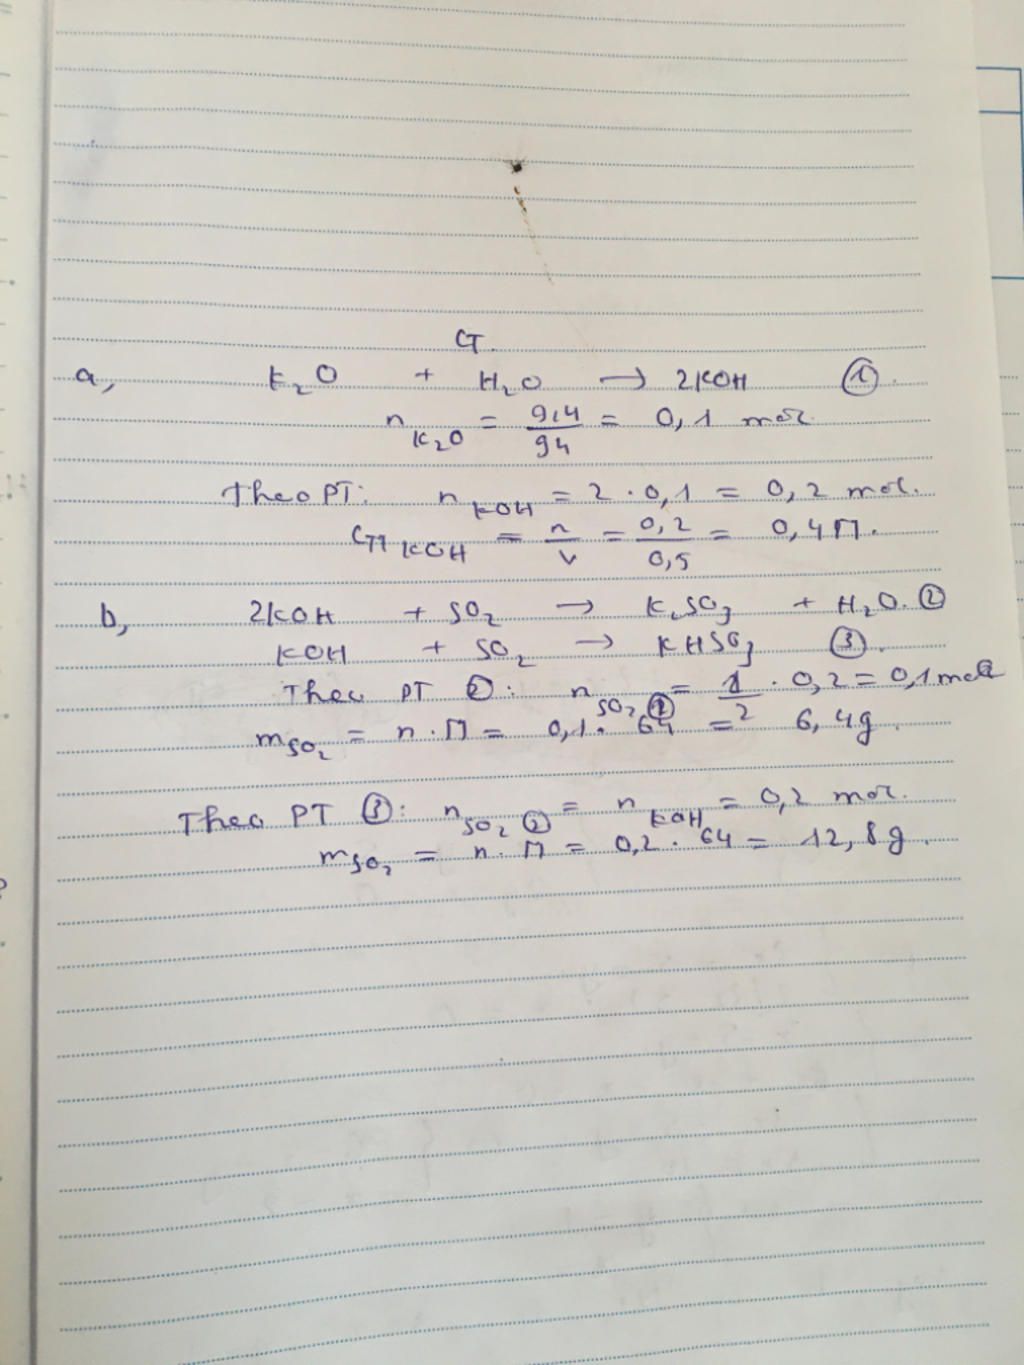 GT.
a, K₂O + H₂O → 2KOH ①.
n K₂O = 9,4/94 = 0,1 mol.
Theo PT: n KOH = 2 . 0,1 = 0,2 mol.
CM KOH = n/V = 0,2/0,5 = 0,4M.
b, 2KOH + SO₂ → K₂SO₃ + H₂O. ②
KOH + SO₂ → KHSO₃ ③.
Theo PT ②: n SO₂ ① = 1/2 . 0,2 = 0,1 mol
m SO₂ = n . M = 0,1 . 64 = 6,4g.
Theo PT ③: n SO₂ ② = n KOH = 0,2 mol.
m SO₂ = n . M = 0,2 . 64 = 12,8g.